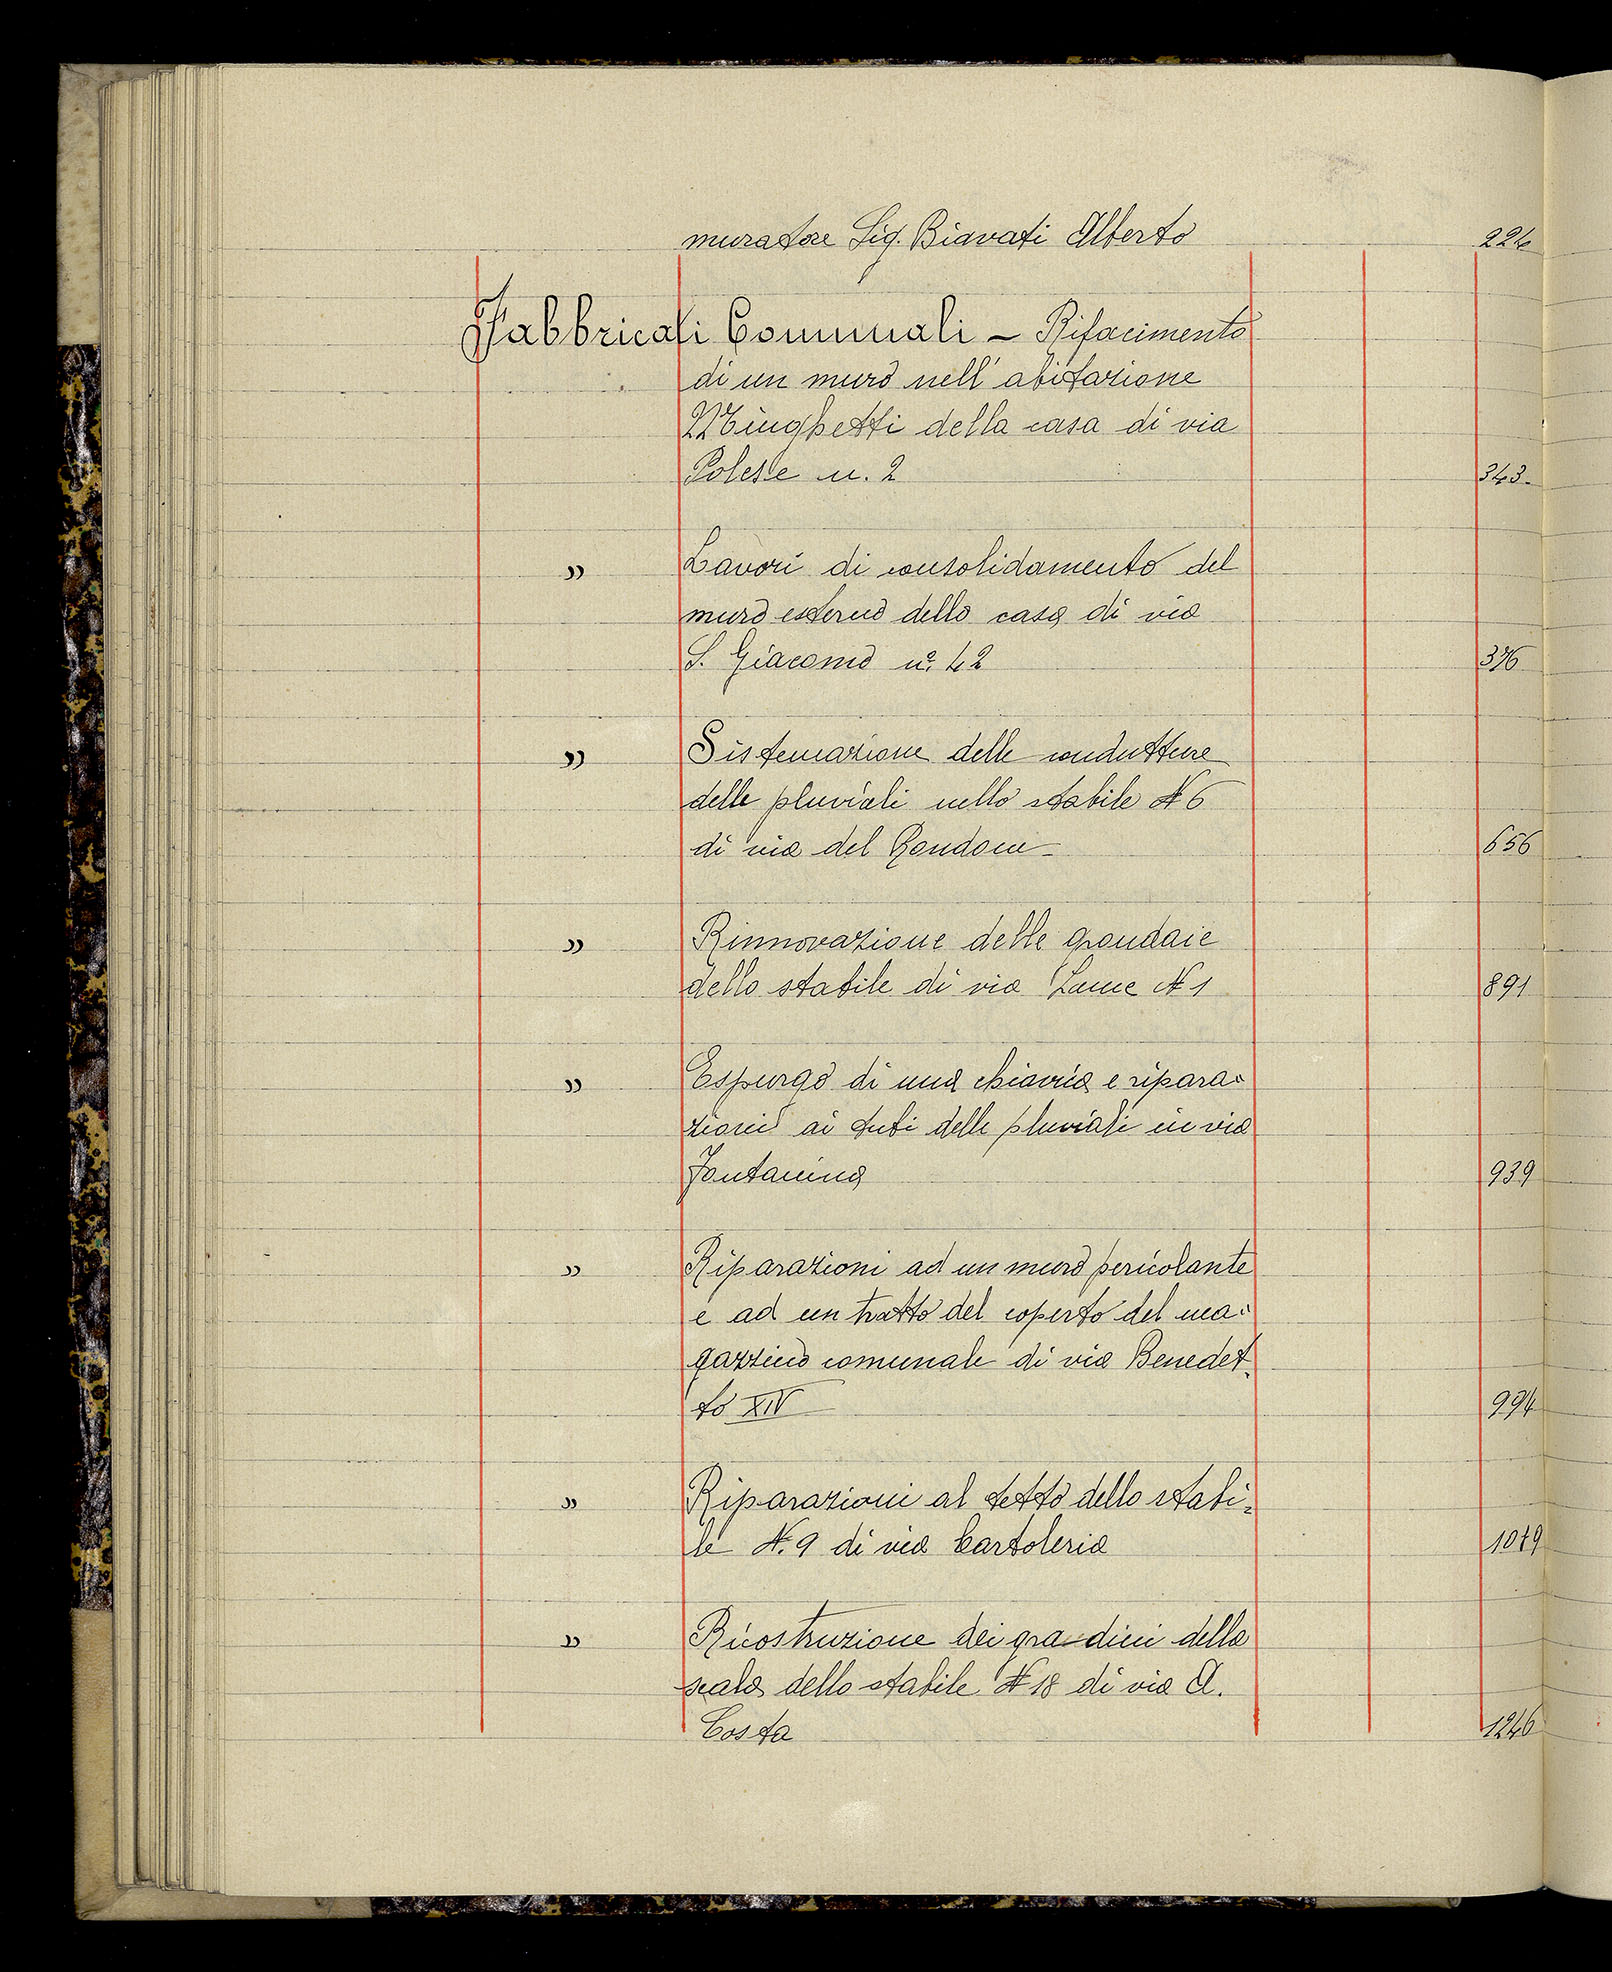 muratore Sig. Biavati Alberto 224
Fabbricati Comunali – Rifacimento
di un muro nell'abitazione
Minghetti della casa di via
Polese n. 2 343
" Lavori di consolidamento del
muro esterno della casa di via
S. Giacomo n.º 42 376
" Sistemazione delle condutture
delle pluviali nello stabile N 6
di via del Rondone 656
" Rinnovazione delle grondaie
dello stabile di via Lame N 1 891
" Espurgo di una chiavica e ripara=
zioni ai tubi delle pluviali in via
Fontanina 939
" Riparazioni ad un muro pericolante
e ad un tratto del coperto del ma=
gazzino comunale di via Benedet=
to XIV 994
" Riparazioni al tetto dello stabi=
le N. 9 di via Cartoleria
" Ricostruzione dei gradini della
scala dello stabile N 18 di via A.
Costa 1246